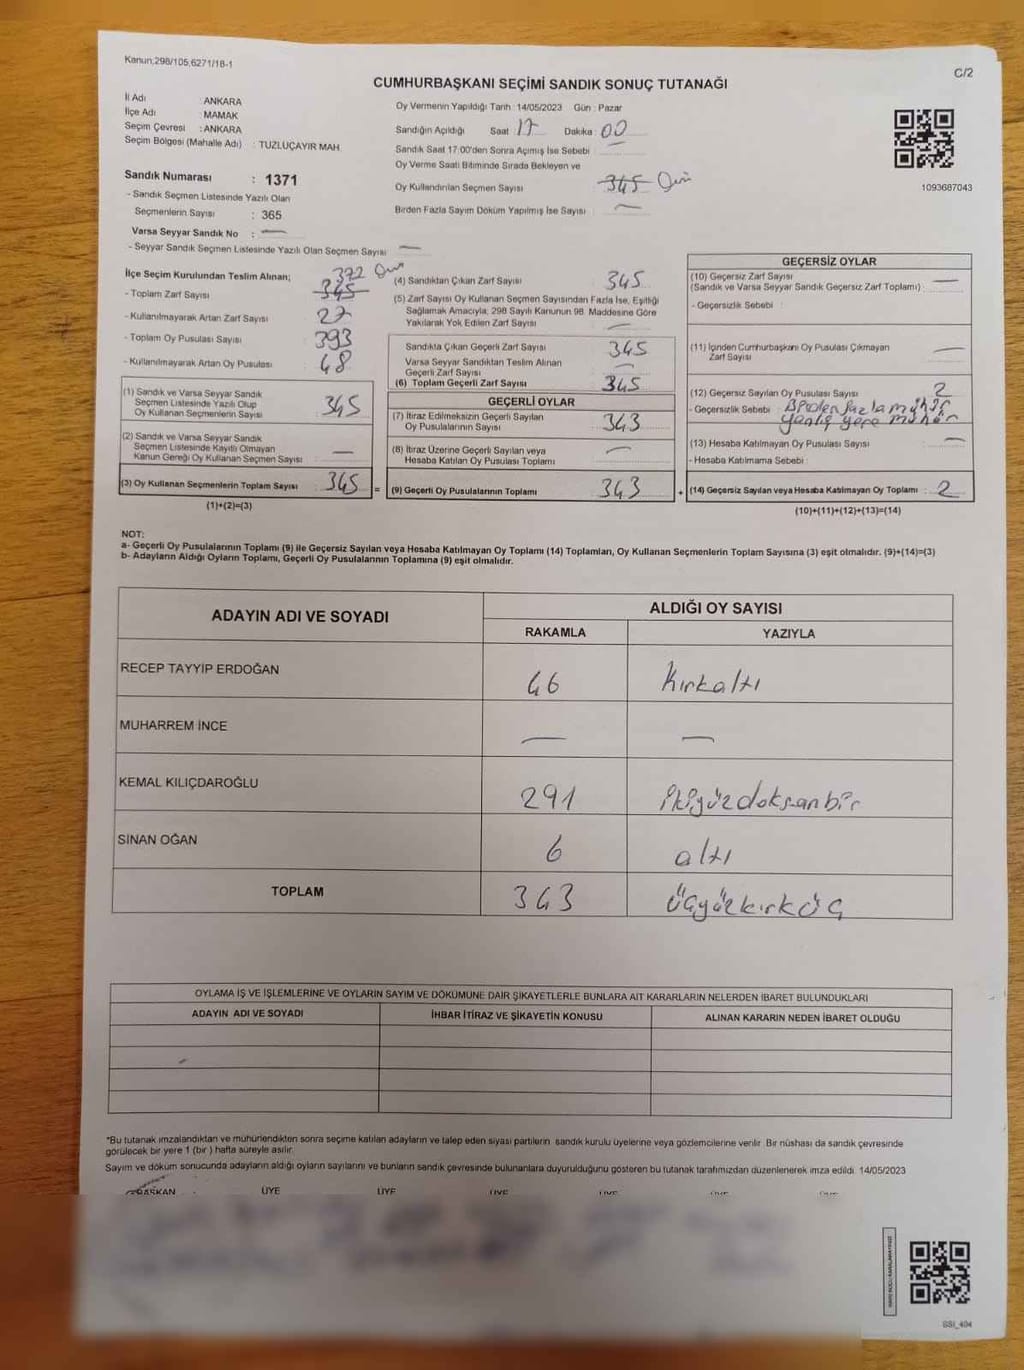 Kanun,298/105,6271/18-1
C/2
CUMHURBAŞKANI SEÇİMİ SANDIK SONUÇ TUTANAĞI
İl Adı : ANKARA
İlçe Adı MAMAK
Seçim Çevresi : ANKARA
Seçim Bölgesi (Mahalle Adı) : TUZLUÇAYIR MAH
Sandık Numarası : 1371
- Sandık Seçmen Listesinde Yazılı Olan
Seçmenlerin Sayısı : 365
Varsa Seyyar Sandık No : —
- Seyyar Sandık Seçmen Listesinde Yazılı Olan Seçmen Sayısı —
Oy Vermenin Yapıldığı Tarih : 14/05/2023 Gün : Pazar
Sandığın Açıldığı Saat : 17 Dakika : 00
Sandık Saat 17:00'den Sonra Açımış İse Sebebi : —
Oy Verme Saati Bitiminde Sırada Bekleyen ve
Oy Kullandırılan Seçmen Sayısı 345
Birden Fazla Sayım Döküm Yapılmış İse Sayısı : —
1093687043
İlçe Seçim Kurulundan Teslim Alınan; 372
- Toplam Zarf Sayısı 345
- Kullanılmayarak Artan Zarf Sayısı 27
- Toplam Oy Pusulası Sayısı 393
- Kullanılmayarak Artan Oy Pusulası 48
(1) Sandık ve Varsa Seyyar Sandık
Seçmen Listesinde Yazılı Olup
Oy Kullanan Seçmenlerin Sayısı 345
(2) Sandık ve Varsa Seyyar Sandık
Seçmen Listesinde Kayıtlı Olmayan
Kanun Gereği Oy Kullanan Seçmen Sayısı : —
(3) Oy Kullanan Seçmenlerin Toplam Sayısı 345 =
(1)+(2)=(3)
(4) Sandıktan Çıkan Zarf Sayısı 345
(5) Zarf Sayısı Oy Kullanan Seçmen Sayısından Fazla İse, Eşitliği
Sağlamak Amacıyla, 298 Sayılı Kanunun 98. Maddesine Göre
Yakılarak Yok Edilen Zarf Sayısı —
Sandıkta Çıkan Geçerli Zarf Sayısı 345
Varsa Seyyar Sandıktan Teslim Alınan
Geçerli Zarf Sayısı —
(6) Toplam Geçerli Zarf Sayısı 345
GEÇERLİ OYLAR
(7) İtiraz Edilmeksizin Geçerli Sayılan
Oy Pusulalarının Sayısı 343
(8) İtiraz Üzerine Geçerli Sayılan veya
Hesaba Katılan Oy Pusulası Toplamı —
(9) Geçerli Oy Pusulalarının Toplamı 343 +
GEÇERSİZ OYLAR
(10) Geçersiz Zarf Sayısı
(Sandık ve Varsa Seyyar Sandık Geçersiz Zarf Toplamı) : —
- Geçersizlik Sebebi :
(11) İçinden Cumhurbaşkanı Oy Pusulası Çıkmayan
Zarf Sayısı —
(12) Geçersiz Sayılan Oy Pusulası Sayısı 2
- Geçersizlik Sebebi : Birden fazla mühür
yanlış yere mühür
(13) Hesaba Katılmayan Oy Pusulası Sayısı —
- Hesaba Katılmama Sebebi :
(14) Geçersiz Sayılan veya Hesaba Katılmayan Oy Toplamı : 2
(10)+(11)+(12)+(13)=(14)
NOT:
a- Geçerli Oy Pusulalarının Toplamı (9) ile Geçersiz Sayılan veya Hesaba Katılmayan Oy Toplamı (14) Toplamları, Oy Kullanan Seçmenlerin Toplam Sayısına (3) eşit olmalıdır. (9)+(14)=(3)
b- Adayların Aldığı Oyların Toplamı, Geçerli Oy Pusulalarının Toplamına (9) eşit olmalıdır.
ADAYIN ADI VE SOYADI
ALDIĞI OY SAYISI
RAKAMLA YAZIYLA
RECEP TAYYİP ERDOĞAN 46 kırkaltı
MUHARREM İNCE — —
KEMAL KILIÇDAROĞLU 291 ikiyüzdoksanbir
SİNAN OĞAN 6 altı
TOPLAM 343 üçyüzkırküç
OYLAMA İŞ VE İŞLEMLERİNE VE OYLARIN SAYIM VE DÖKÜMÜNE DAİR ŞİKAYETLERLE BUNLARA AİT KARARLARIN NELERDEN İBARET BULUNDUKLARI
ADAYIN ADI VE SOYADI İHBAR İTİRAZ VE ŞİKAYETİN KONUSU ALINAN KARARIN NEDEN İBARET OLDUĞU
*Bu tutanak imzalandıktan ve mühürlendikten sonra seçime katılan adayların ve talep eden siyasi partilerin sandık kurulu üyelerine veya gözlemcilerine verilir. Bir nüshası da sandık çevresinde
görülecek bir yere 1 (bir) hafta süreyle asılır.
Sayım ve döküm sonucunda adayların aldığı oyların sayılarını ve bunların sandık çevresinde bulunanlara duyurulduğunu gösteren bu tutanak tarafımızdan düzenlenerek imza edildi. 14/05/2023
BAŞKAN ÜYE ÜYE ÜYE ÜYE ÜYE ÜYE
SSI_494